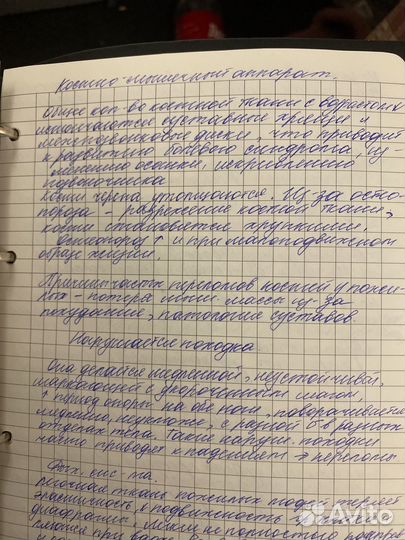 Костно-мышечный аппарат.
Общее кол-во костной ткани с возрастом
истончаются суставные хрящи и
межпозвонковые диски, что приводит
к развитию болевого синдрома, из-
менению осанки, искривлению
позвоночника
Кости черепа утолщаются. Из-за остео-
пороза - разрежение костной ткани,
кости становятся хрупкими.
Остеопороз ↑ и при малоподвижном
образе жизни.
Причины частых переломов костей у пожи-
лых - потеря мыш. массы из-за
похудания, патология суставов.
Нарушается походка
Она делается медленной, неустойчивой,
шаркающей с укороченным шагом,
↑ период опоры на обе ноги, поворачивается
медленно, неуклюже, с разной в разных
отделах тела. Такие наруш. походки
часто приводят к падениям → переломы
Дых. сис-ма.
Легочная ткань пожилых людей теряет
эластичность, ↓ подвижность
диафрагмы. Легкие не полностью
при вдохе.
Avito